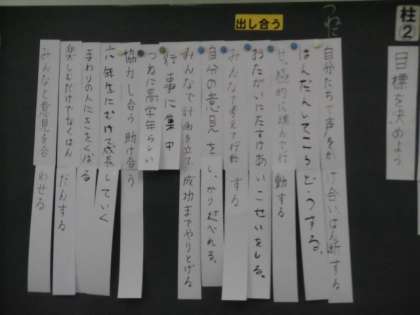 柱2
目標を決めよう
出し合う
つねに
自分たちで声をかけ合いはん断する
はんだんしてこうどうする。
せっ極的に進んで行動する
おたがいにたすけあいこせいをしる。
みんなで考えて行動する
自分の意見をしっかり述べれる。
みんなで計画を立て成功までやりとげる
行事に集中
つねに高学年らしい
協力し合う助け合う
六年生にむけて成長していく
まわりの人に気をくばる
楽しむだけでなくはんだんする
みんなと意見を合わせる